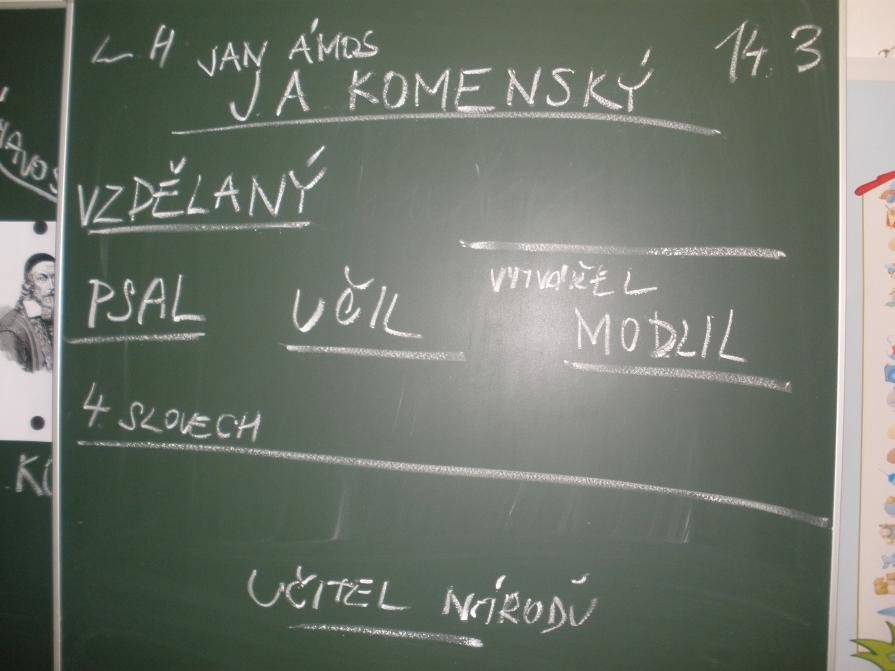 L H JAN ÁMOS 14. 3
J. A KOMENSKÝ
VZDĚLANÝ
VYTVÁŘEL
PSAL UČIL MODLIL
4 SLOVECH
UČITEL NÁRODŮ